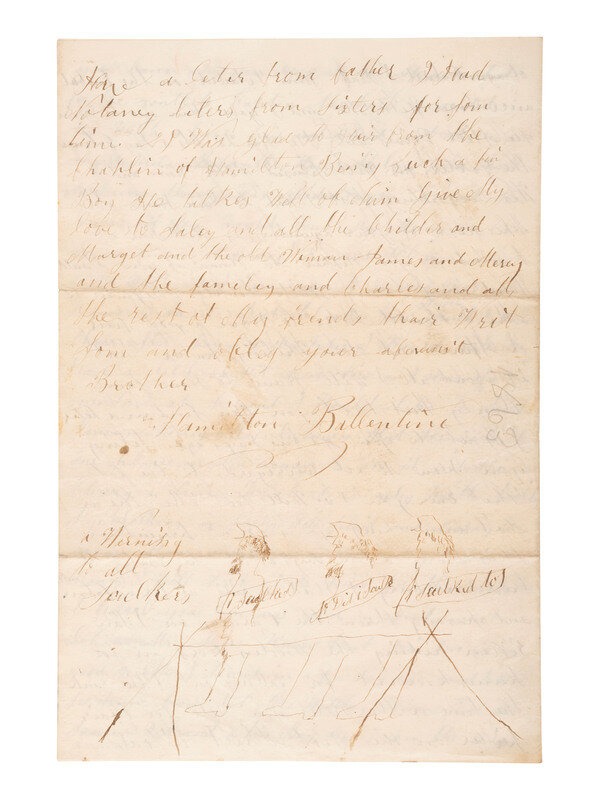 Have a leter from father I had
leters from Sisters for som
time I Was glad to hair from the
Chaplin of Hamilton Being such a fin
Boy He takes Well of him Give My
love to Saley and all the Childer and
Marget and the old Wiman James and Mercy
and the fameley and Charles and all
the rest of My frends thair Writ
som and your
Brother
Hamilton Ballentine
a Werning
to all
Soulkers
I Saulked
I Did i Saulk
I Saulked to